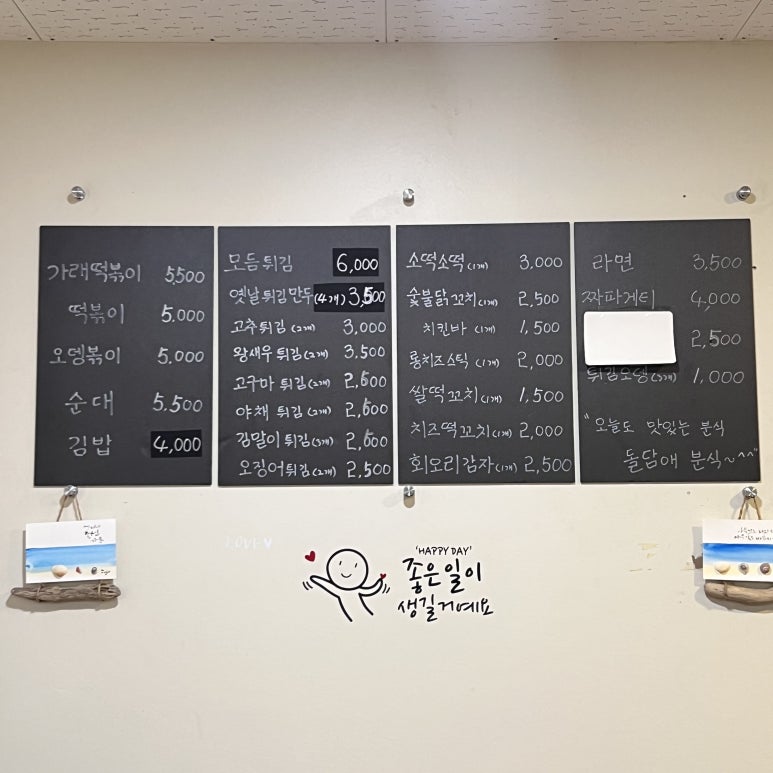 가래떡볶이 5,500
떡볶이 5,000
오뎅볶이 5,000
순대 5,500
김밥 4,000
모듬튀김 6,000
옛날튀김만두(4개) 3,500
고추튀김(2개) 3,000
왕새우튀김(2개) 3,500
고구마튀김(2개)
야채튀김(2개)
김말이튀김(3개)
오징어튀김(2개) 2,500
소떡소떡(1개) 3,000
숯불닭꼬치(1개) 2,500
치킨바(1개) 1,500
롱치즈스틱(1개) 2,000
쌀떡꼬치(1개) 1,500
치즈떡꼬치(1개) 2,000
회오리감자(1개) 2,500
라면 3,500
짜파게티 4,000
2,500
튀김오뎅(3개) 1,000
"오늘도 맛있는 분식
돌담애 분식~^^"
LOVE
'HAPPY DAY'
좋은일이
생길거예요